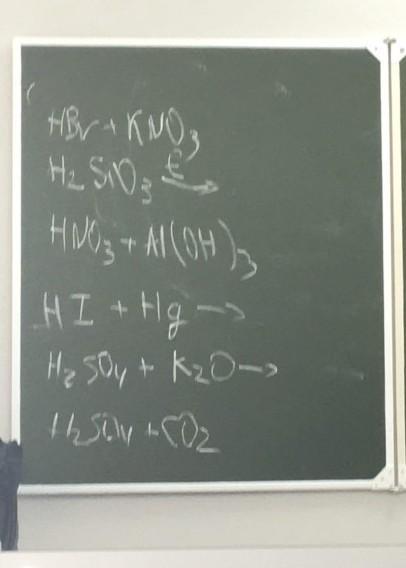 HBr + KNO₃
H₂SiO₃ t→
HNO₃ + Al(OH)₃
HI + Hg →
H₂SO₄ + K₂O →
H₂SO₄ + CO₂